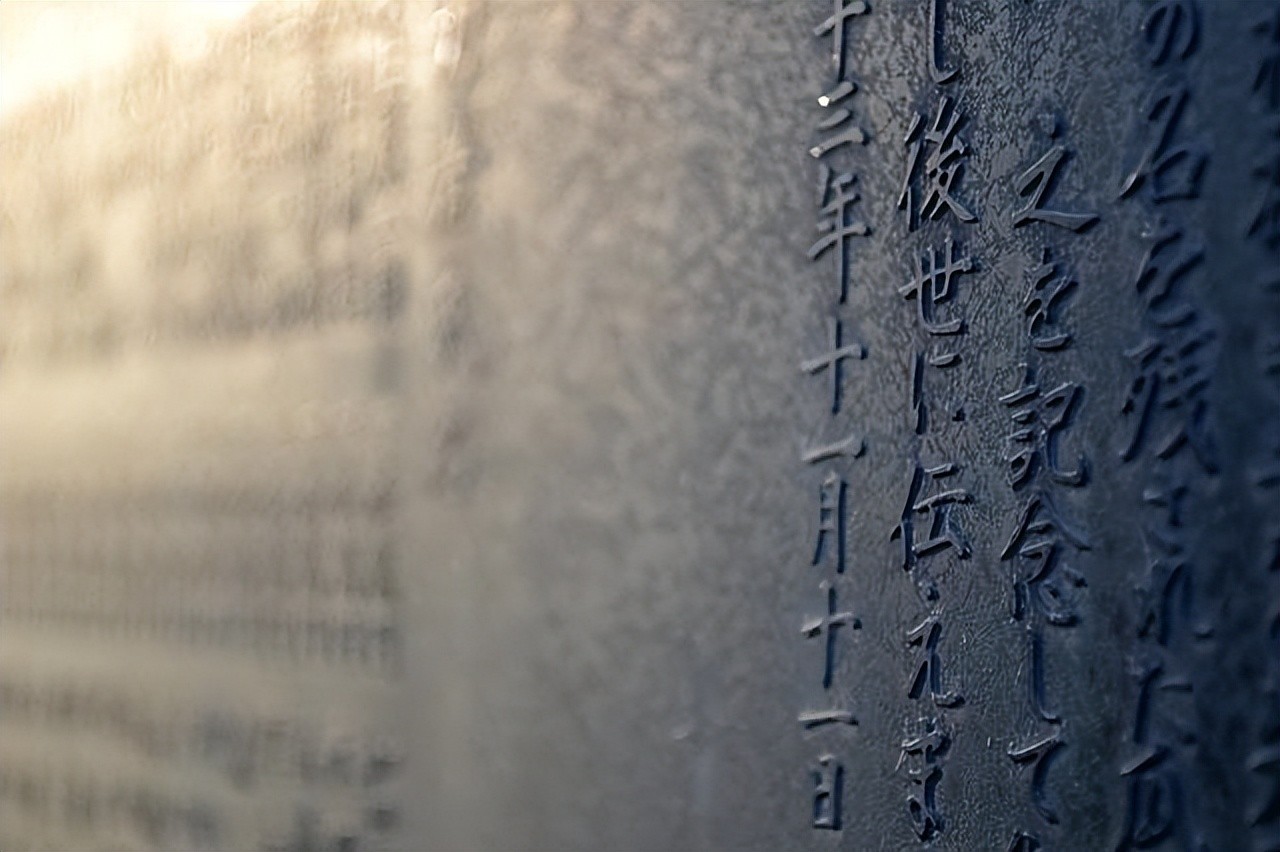 の名を残された
之を記念して
し後世に伝えま
十三年十一月十一日